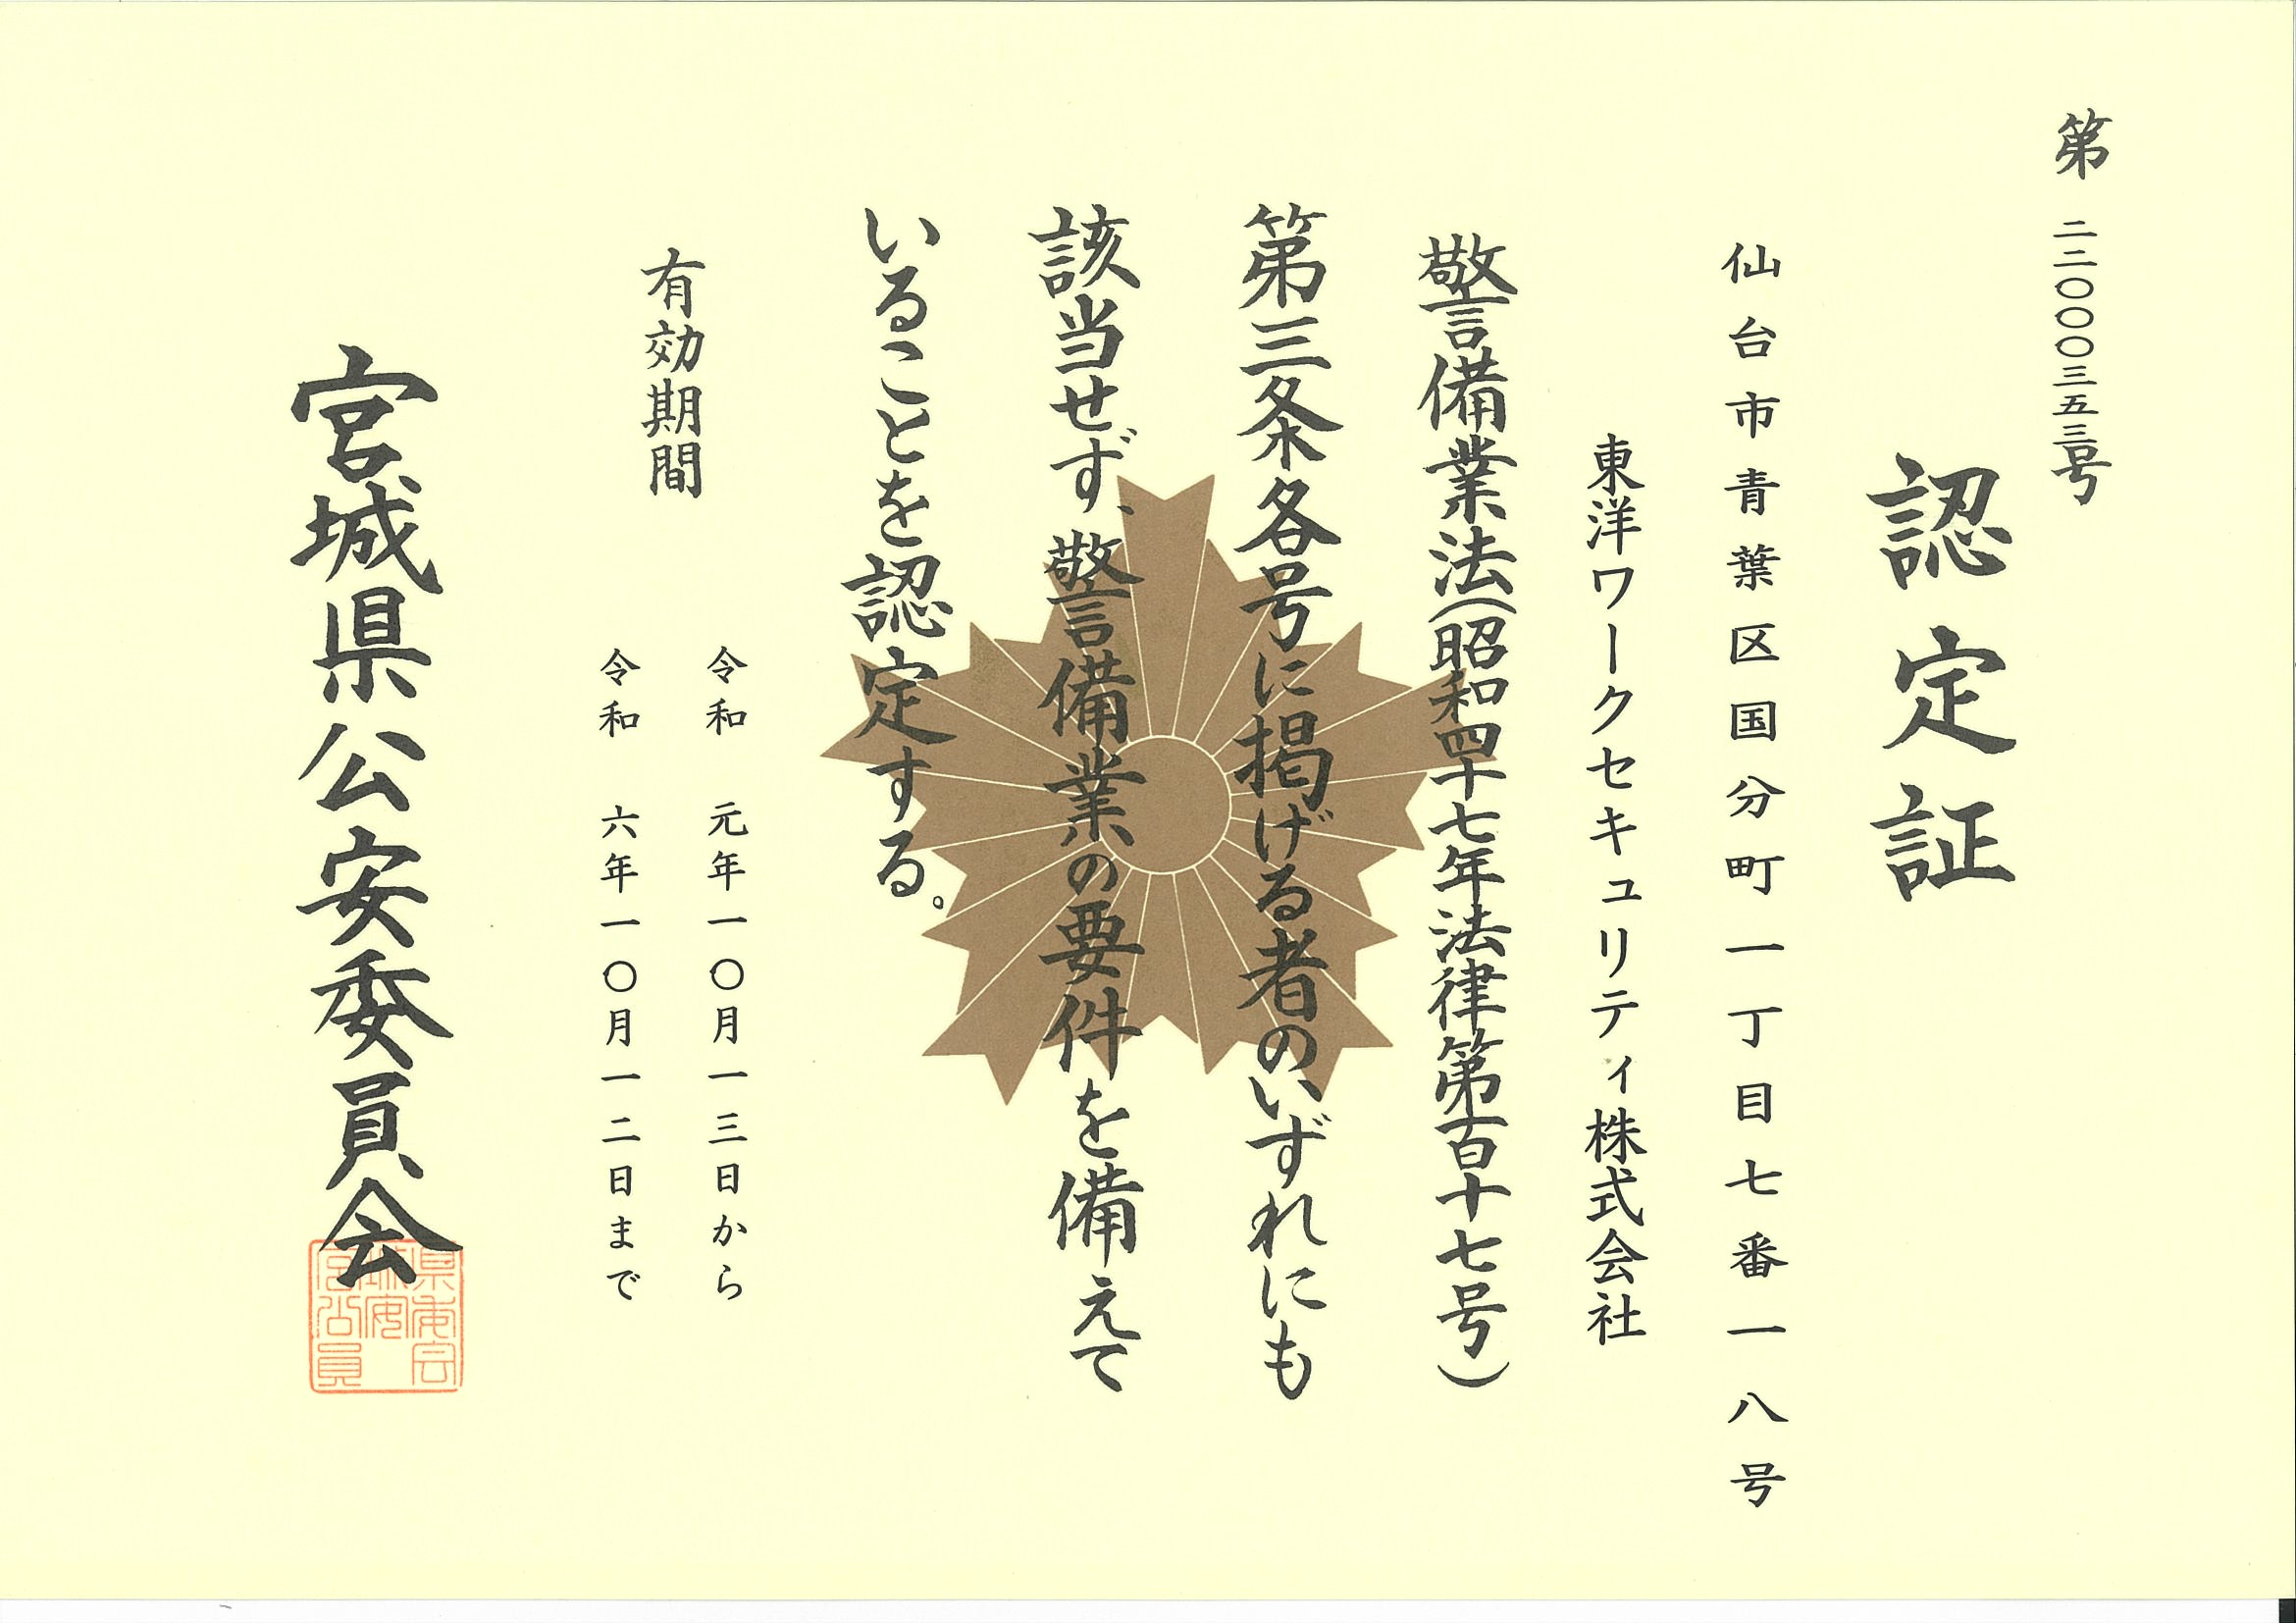 第二二〇〇〇三五三号
認定証
仙台市青葉区国分町一丁目七番一八号
東洋ワークセキュリティ株式会社
警備業法(昭和四十七年法律第百十七号)
第三条各号に掲げる者のいずれにも
該当せず、警備業の要件を備えて
いることを認定する。
有効期間
令和 元年一〇月一三日から
令和 六年一〇月一二日まで
宮城県公安委員会